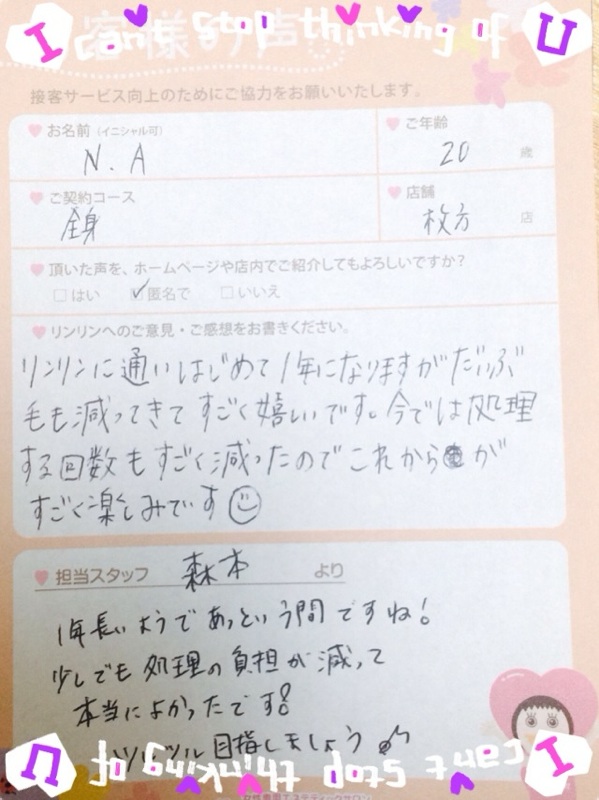 I can't stop thinking of U
お客様の声
接客サービス向上のためにご協力をお願いいたします。
お名前（イニシャル可）
N.A
ご年齢
20 歳
ご契約コース
全身
店舗
枚方 店
頂いた声を、ホームページや店内でご紹介してもよろしいですか？
□はい ☑匿名で □いいえ
リンリンへのご意見・ご感想をお書きください。
リンリンに通いはじめて1年になりますがだいぶ
毛も減ってきてすごく嬉しいです。今では処理
する回数もすごく減ったのでこれからが
すごく楽しみです
担当スタッフ 森本 より
1年長いようであっという間ですね！
少しでも処理の負担が減って
本当によかったです!!
ツルツル目指しましょう
I can't stop thinking of U
女性専用エステティックサロン